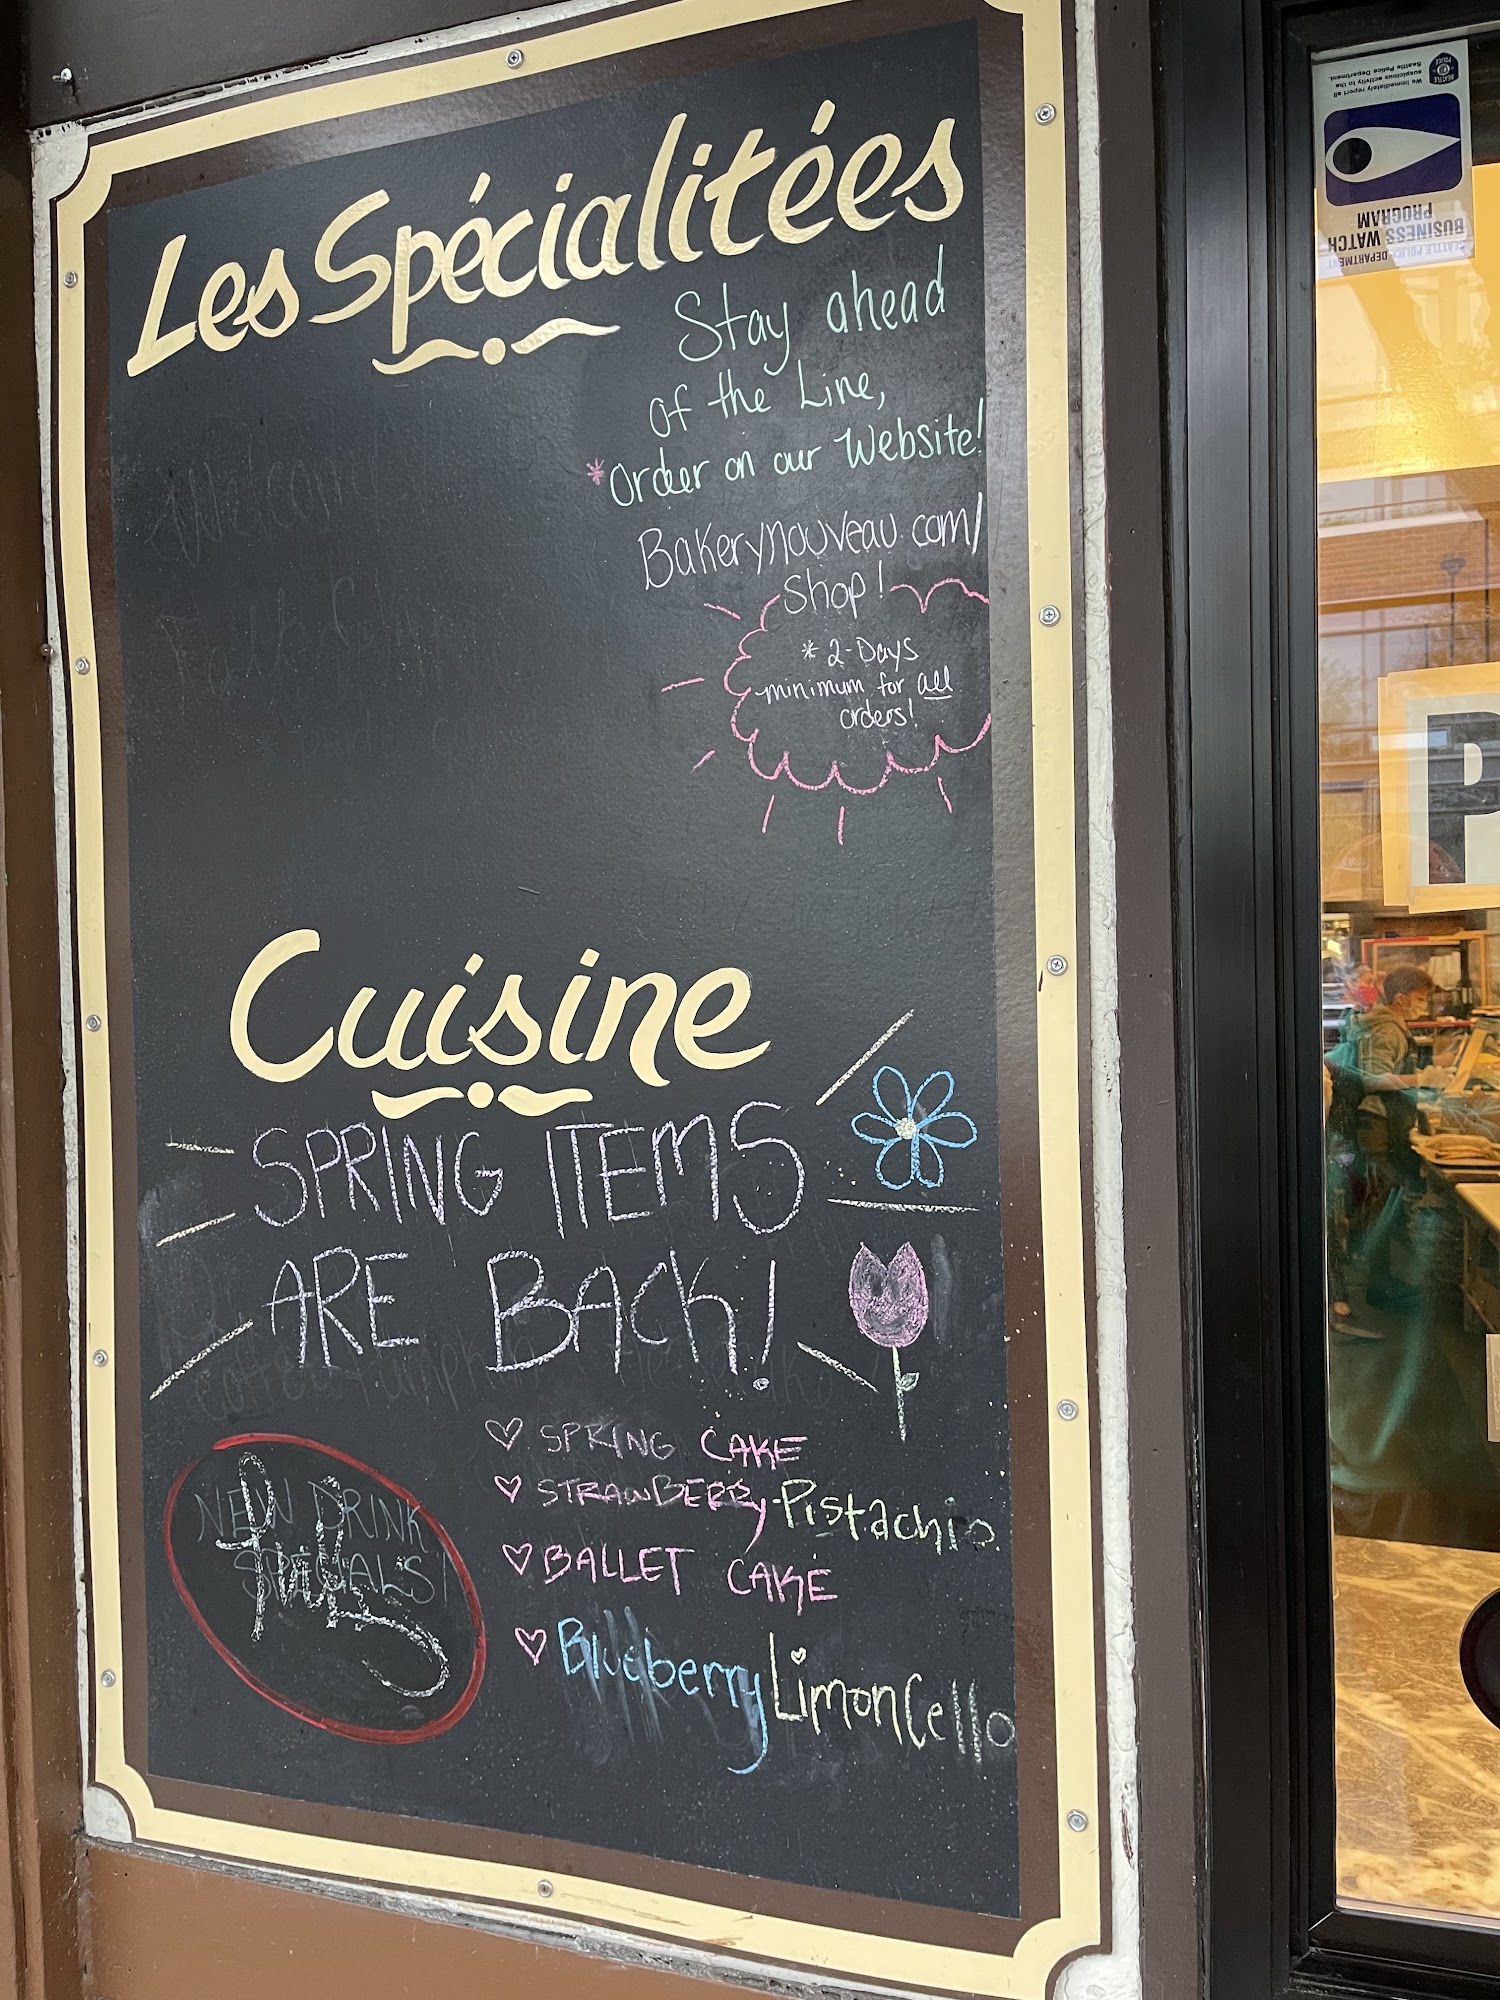 Les Spécialitées
Stay ahead
of the Line,
*Order on our Website!
Bakerynouveau.com/
Shop!
* 2-Days
minimum for all
orders!
Cuisine
SPRING ITEMS
ARE BACK!
♡ SPRING CAKE
♡ STRAWBERRY-Pistachio
♡ BALLET CAKE
♡ Blueberry LimonCello
NEW DRINK
SPECIALS!
SEATTLE POLICE DEPARTMENT
BUSINESS WATCH
PROGRAM
We immediately report all
suspicious activity to the
Seattle Police Department
SEATTLE
POLICE
P